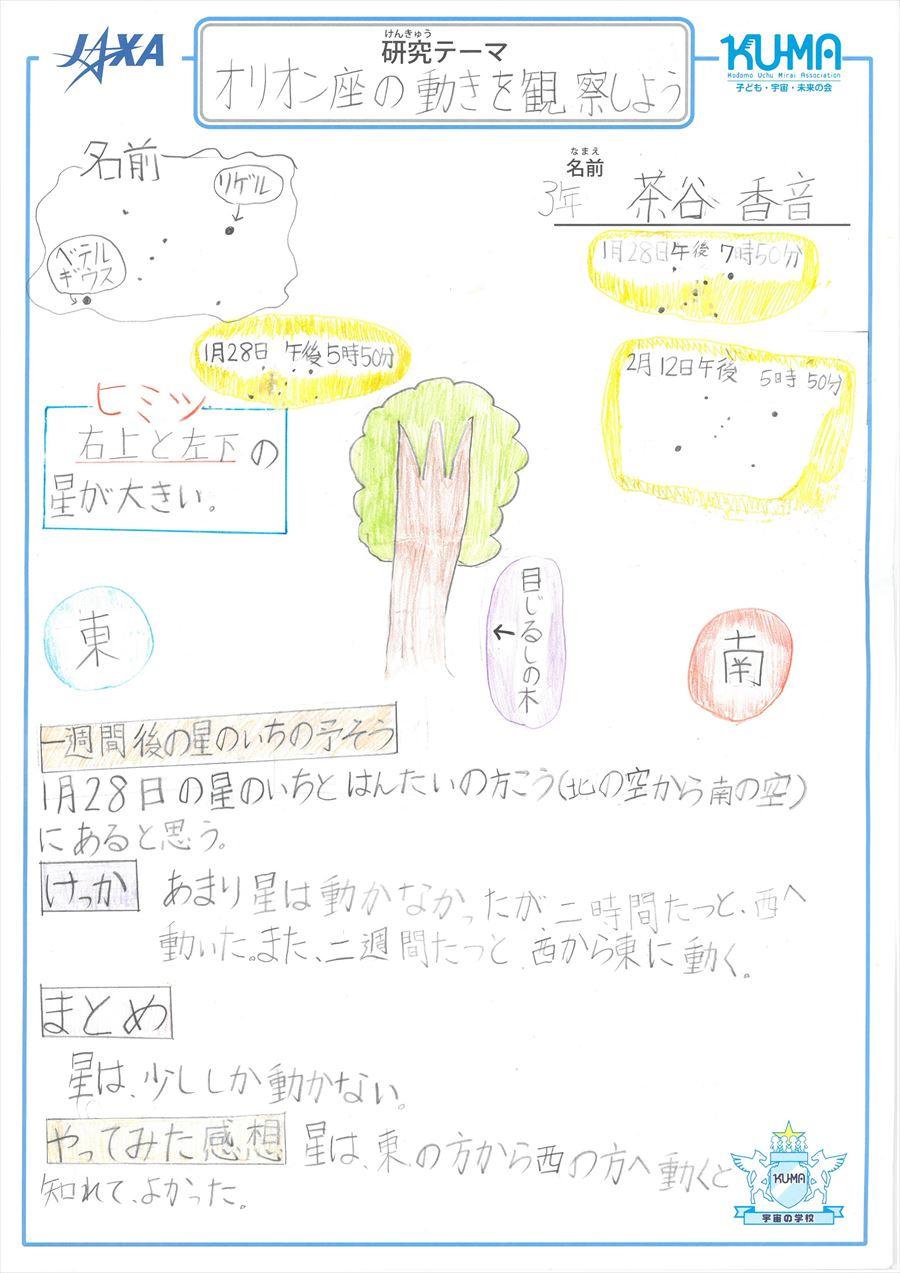 JAXA
けんきゅう
研究テーマ
オリオン座の動きを観察しよう
KU-MA
Kodomo Uchu Mirai Association
子ども・宇宙・未来の会
名前
リゲル
ベテル
ギウス
なまえ
名前
3年 茶谷 香音
1月28日午後 7時50分
1月28日 午後5時50分
2月12日午後 5時50分
ヒミツ
右上と左下の
星が大きい。
目じるしの木
←
東
南
一週間後の星のいちの予そう
1月28日の星のいちとはんたいの方こう(北の空から南の空)
にあると思う。
けっか
あまり星は動かなかったが、二時間たつと、西へ
動いた。また、二週間たつと、西から東に動く。
まとめ
星は、少ししか動かない。
やってみた感想 星は、東の方から西の方へ動くと
知れて、よかった。
KU-MA
宇宙の学校